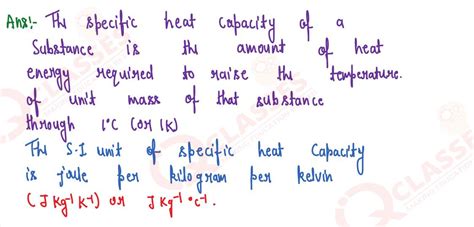 Ans:- The specific heat capacity of a
Substance is the amount of heat
energy required to raise the temperature.
of unit mass of that substance
through 1°C (or 1K)
The S.I unit of specific heat Capacity
is joule per kilogram per kelvin
(J Kg⁻¹ K⁻¹) or J Kg⁻¹ °C⁻¹.
CLASSES
CLASSES